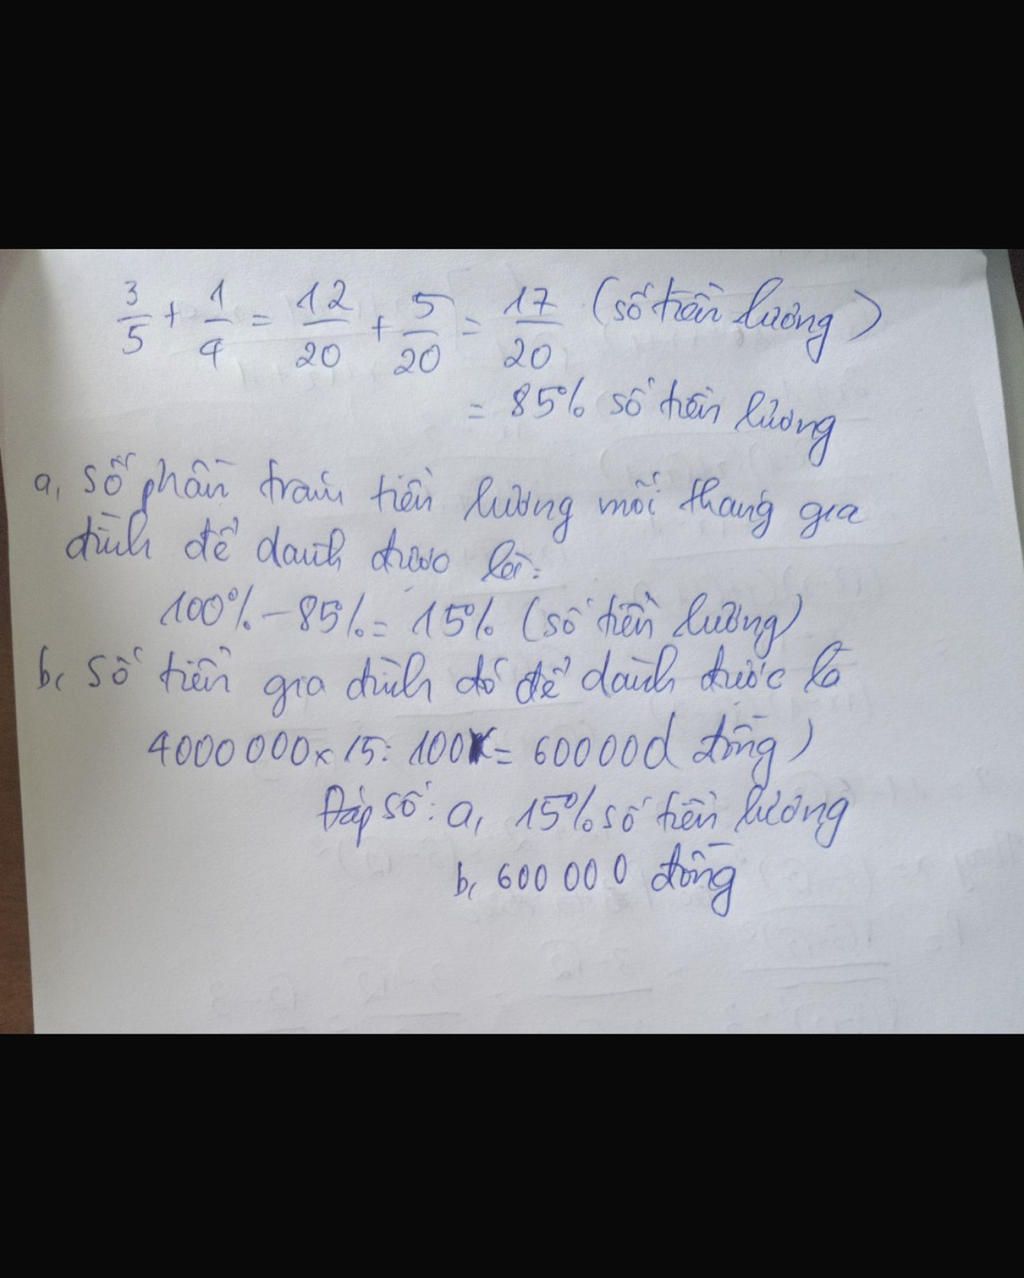 3/5 + 1/4 = 12/20 + 5/20 = 17/20 (số tiền lương)
= 85% số tiền lương
a, Số phần trăm tiền lương mỗi tháng gia
đình để dành được là:
100% - 85% = 15% (số tiền lương)
b, Số tiền gia đình đó để dành được là
4000 000 x 15 : 100 = 60000d đồng)
Đáp số: a, 15% số tiền lương
b, 600 000 đồng